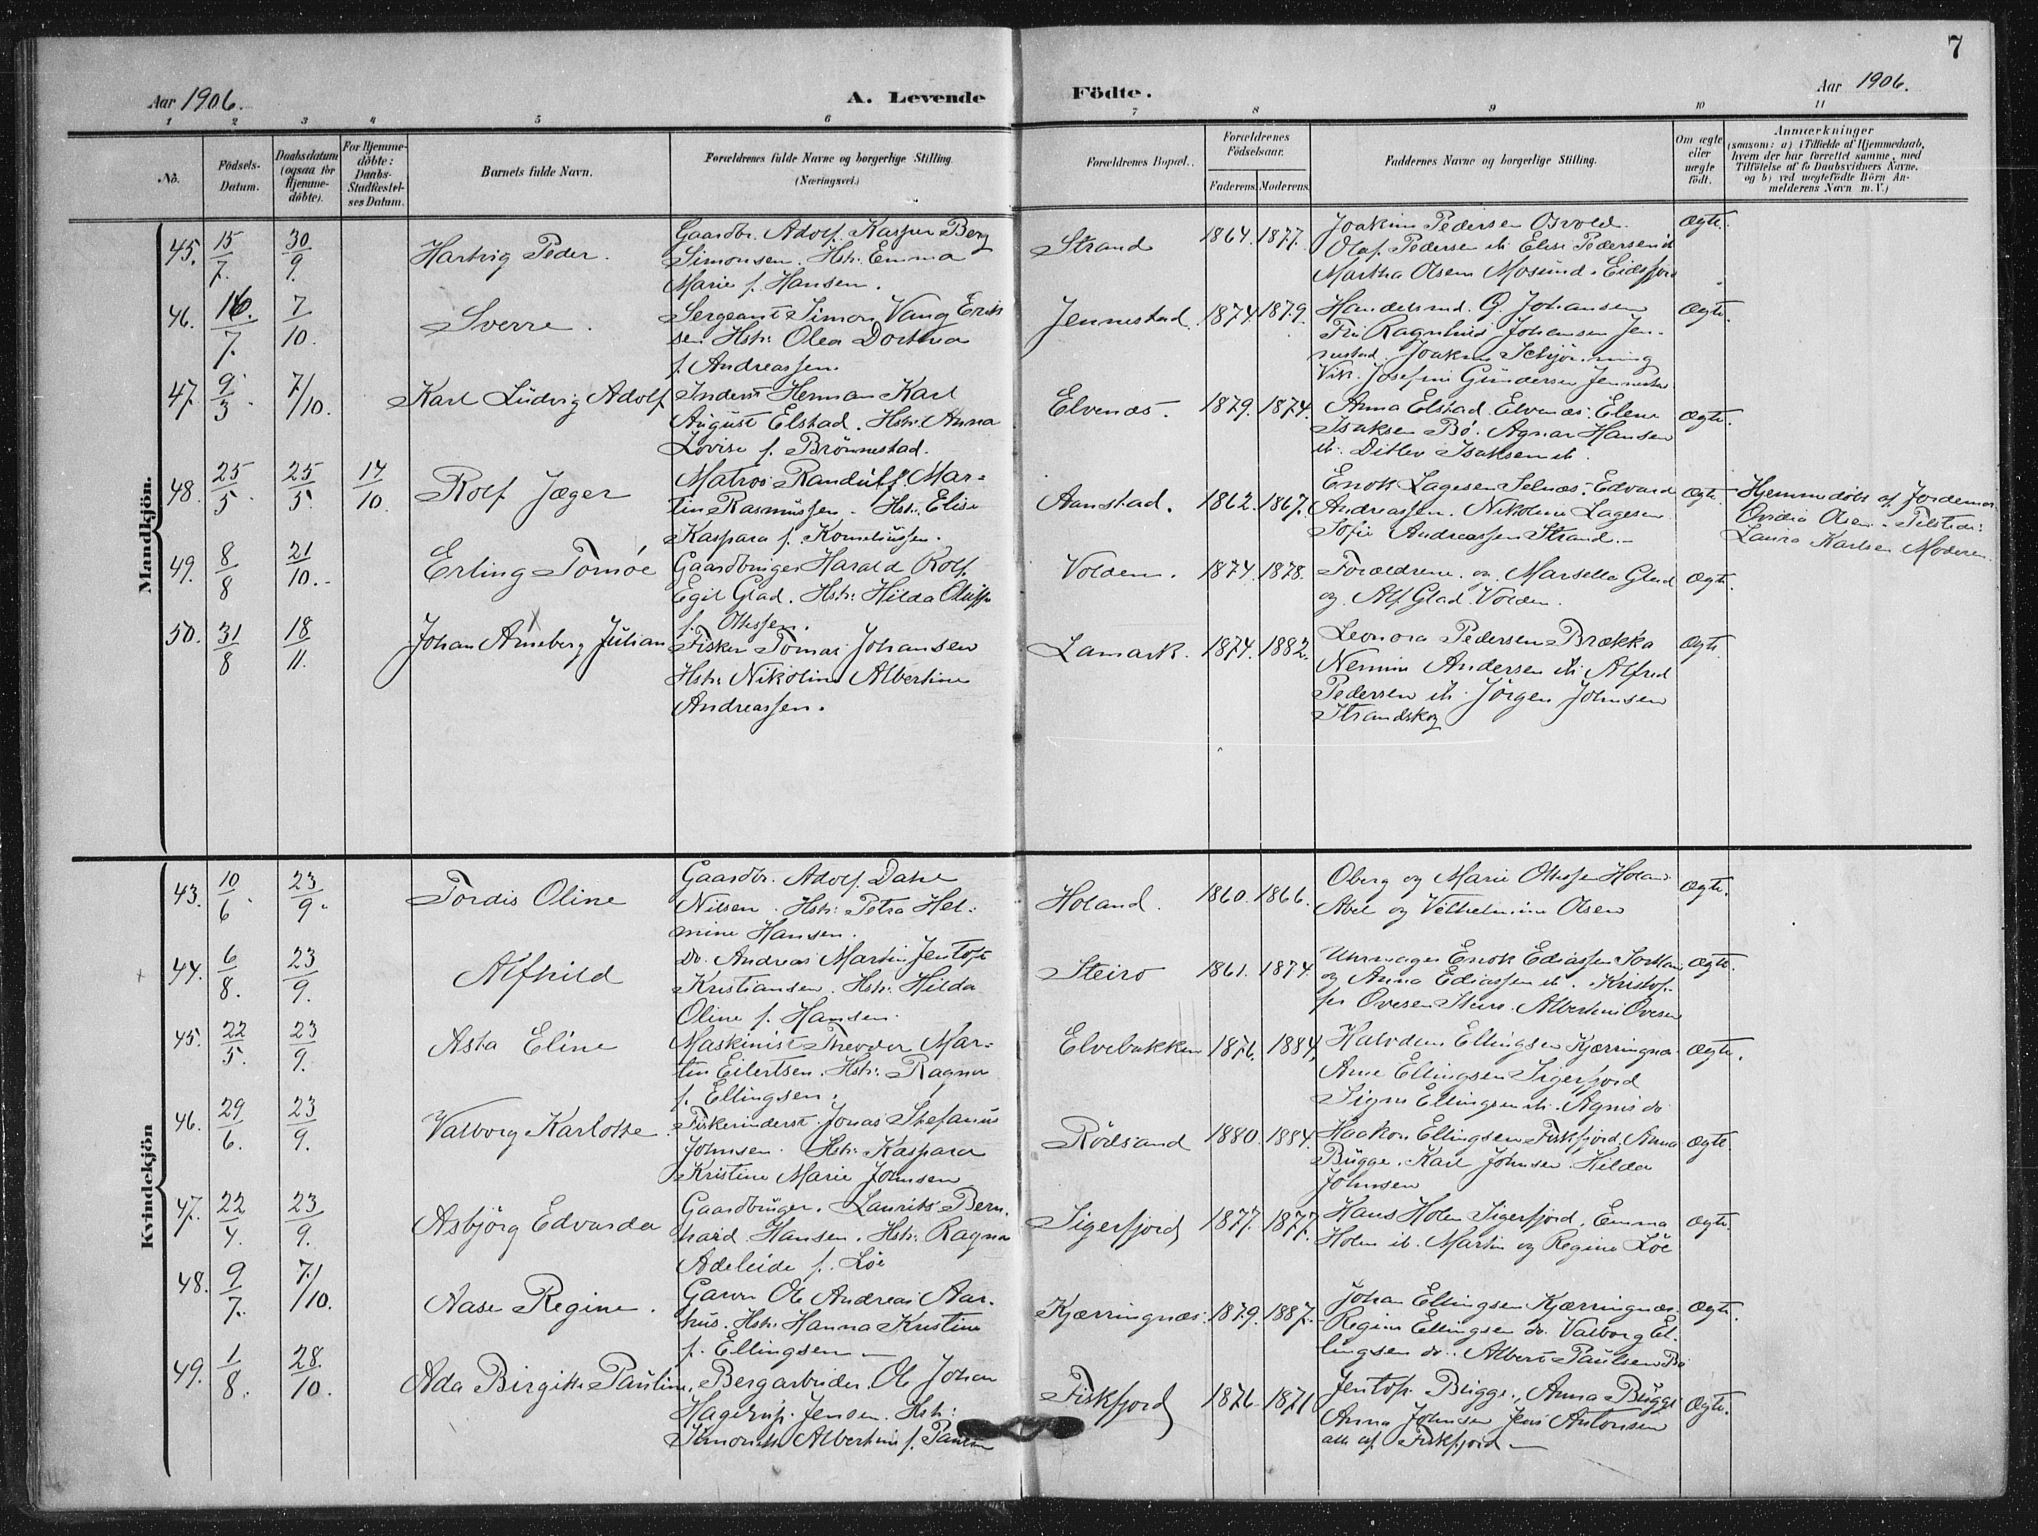 7
Aar 1906. A. Levende Födte. Aar 1906.
1 2 3 4 5 6 7 8 9 10 11
No. Födsels-Datum. Daabsdatum (ogsaa for Hjemmedöbte). For Hjemmedöbte: Daabs-Stadfæstelses Datum. Barnets fulde Navn. Forældrenes fulde Navne og borgerlige Stilling. (Næringsvei.) Forældrenes Bopæl. Forældrenes Födselsaar. Faderens. Moderens. Faddernes Navne og borgerlige Stilling. Om ægte eller uægte födt. Anmærkninger
(saasom: a) i Tilfælde af Hjemmedaab, hvem der har forrettet samme, med Tilföielse af to Daabsvidners Navne. og b) ved uægtefödte Börn Anmelderens Navn m. V.)
Mandkjön.
45. 15/7 30/9. Hartvig Peder. Gaardbr. Adolf Kasper Berg
Simonsen. Hstr. Emma
Marie f. Hansen.
Strand 1864. 1877. Joakim Pedersen Osvold.
Olaf Pedersen ib Elise Pedersen ib
Martha Olsen Mosund. Eidsfjord
Ægte.
46. 16./7. 7/10. Sverre. Sergeant Simon Vang Erik
sen Hstr. Olea Dorthea
f. Andreassen.
Jennestad. 1874 1879. Handelsmd. G. Johansen
Frü Ragnhild Johansen Jen-
nestad. Joakim Schjönning
Vik. Josefine Gündersen Jennestad
Ægte.
47. 9/3. 7/10. Karl Lüdvig Adolf Inderst Herman Karl
August Elstad. Hstr. Anna
Lovise f. Brönnestad.
Elvenæs. 1879. 1874. Anna Elstad Elvenæs. Elene
Isaksen Bö. Agnar Hansen
ib. Ditlev Isaksen ib.
Ægte.
48. 25/5. 25/5. 14/10. Rolf Jæger Matros Randülf Mar-
tin Rasmüssen. Hstr. Elise
Kaspara f. Korneliüssen.
Aanstad. 1862. 1867. Enok Lagesen Selnæs. Edvard
Andreassen. Nikoline Lagesen.
Sofie Andreassen Strand.
Ægte. Hjemmedöbt af Jordemor
Ovidia Olsen.
Laura Karlsen Moderen
49. 8/8 21/10. Erling Tomöe Gaardbrüger Harald Rolf
Egil Glad. Hstr. Hilda
f. Olüssen.
Volden. 1874. 1878. Forældrene og Marselle Glad
og Alf Glad Volden.
Ægte.
50. 31/8 18/11. Johan Arneberg Julian Fisker Tomas Johansen
Hstr. Nikoline Albertine
Andreassen.
Lamark. 1874. 1882. Leonora Pedersen Brækka
Andersen ib Alfred
Pedersen ib. Jörgen Johnsen
Strandskog
Ægte.
Kvindekjön
43. 10/6. 23/9. Tordis Oline Gaardbr. Adolf Dahl
Nilsen. Hstr. Petra Hel-
mine Hansen.
Holand. 1860. 1866. Oberg og Marie Holand.
Abel og Vilhelmine Olsen
Ægte.
44. 6/8. 23/9. Alfhild Do. Andreas Martin Jentoft
Kristiansen. Hstr. Hilda
Oline f. Hansen.
Steiro 1861. 1874. Uhrmager Enok Ediassen Sortland
og Anna Ediassen ib. Kristof-
fer Ovesen Steiro. Albertine Ovesen
Ægte.
45. 22/5. 23/9. Asta Eline Maskinist Theodor Mar-
tin Eilertsen. Hstr. Ragna
f. Ellingsen.
Elvebakken 1876. 1884. Halvdan Ellingsen Kjærringnæs
Arne Ellingsen Sigerfjord
Signe Ellingsen ib. Agnes do
Ægte.
46. 29/6. 23/9. Valborg Karlotte. Fiskerinderst Jonas Stefanus
Johnsen. Hstr. Kaspara
Kristine Marie Johnsen
Rödsand 1880. 1884. Haakon Ellingsen Fiskfjord. Anna
Bügge. Karl Johnsen. Hilda
Johnsen
Ægte
47. 22/4. 23/9. Asbjörg Edvarda Gaardbrüger. Laurits Bern-
hard Hansen. Hstr. Ragna
Adeleide f. Löe
Sigerfjord 1877. 1877. Hans Holm Sigerfjord. Emma
Holm ib. Martin og Regine Löe
Ægte.
48. 9/7. 7/10. Aase Regine. Garver Ole Andreas Aar-
hüs. Hstr. Hanna Kristine
f. Ellingsen
Kjærringnæs. 1879. 1887. Johan Ellingsen Kjærringnæs
Regine Ellingsen do. Valborg El-
lingsen do. Albert Paulsen
Ægte.
49. 1/8. 28./10. Ada Birgitte Pauline. Bergarbeider Ole Johan
Hagerup Jensen. Hstr.
Albertine f. Paulsen
Fiskfjord 1876. 1871 Jentoft Bügge. Anna Bügge
Anna Johnsen Jens Antonsen
alle af Fiskfjord
Ægte.